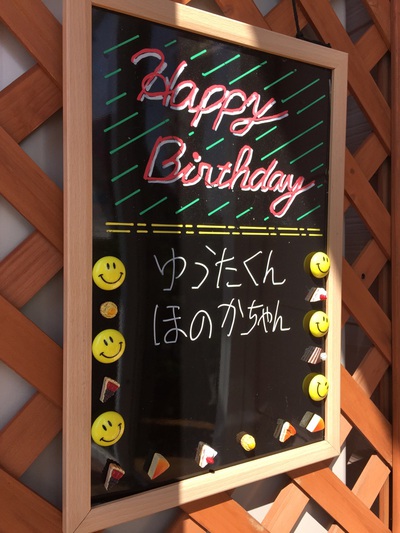 Happy
Birthday
ゆうたくん
ほのかちゃん